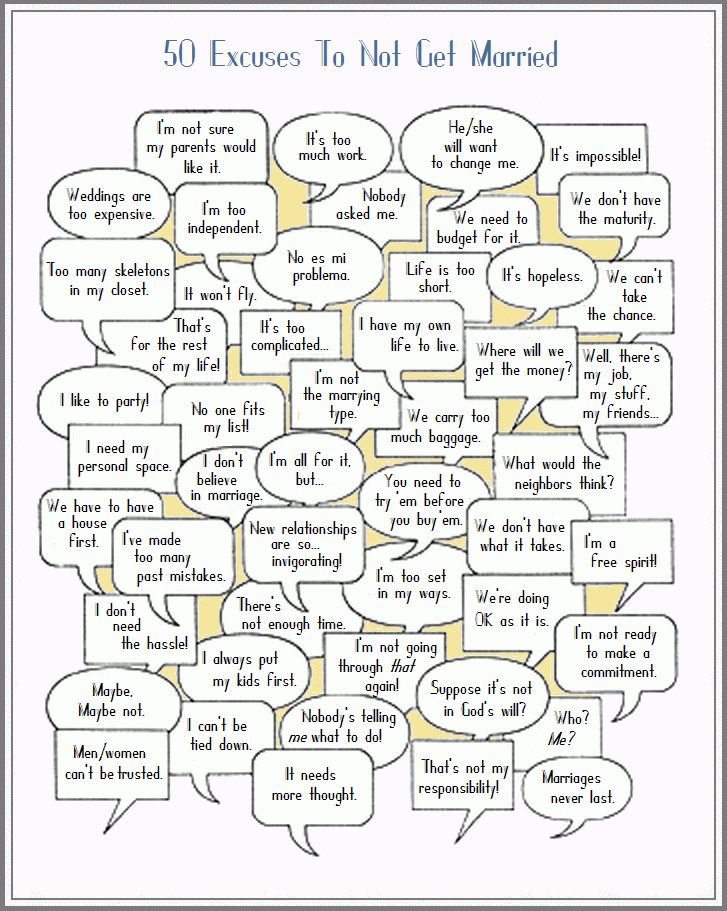 50 Excuses To Not Get Married
I'm not sure
my parents would
like it.
It's too
much work.
He/she
will want
to change me.
It's impossible!
Weddings are
too expensive.
I'm too
independent.
Nobody
asked me.
We need to
budget for it.
We don't have
the maturity.
Too many skeletons
in my closet.
It won't fly.
No es mi
problema.
Life is too
short.
It's hopeless.
We can't
take
the chance.
That's
for the rest
of my life!
It's too
complicated...
I have my own
life to live.
Where will we
get the money?
Well, there's
my job,
my stuff,
my friends...
I like to party!
No one fits
my list!
I'm not
the marrying
type.
We carry too
much baggage.
I need my
personal space.
I don't
believe
in marriage.
I'm all for it,
but...
You need to
try 'em before
you buy 'em.
What would the
neighbors think?
We have to have
a house
first.
I've made
too many
past mistakes.
New relationships
are so...
invigorating!
We don't have
what it takes.
I'm a
free spirit!
I'm too set
in my ways.
I don't
need
the hassle!
There's
not enough time.
We're doing
OK as it is.
I'm not ready
to make a
commitment.
I always put
my kids first.
I'm not going
through that
again!
Suppose it's not
in God's will?
Maybe,
Maybe not.
I can't be
tied down.
Nobody's telling
me what to do!
Who?
Me?
Men/women
can't be trusted.
It needs
more thought.
That's not my
responsibility!
Marriages
never last.